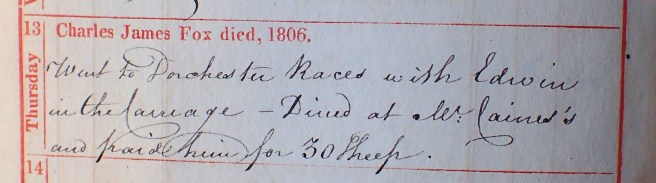 13 Charles James Fox died, 1806.
Thursday
Went to Dorchester Races with Edwin
in the Carriage – Dined at Mr. Caines's
and paid him for 30 Sheep.
14